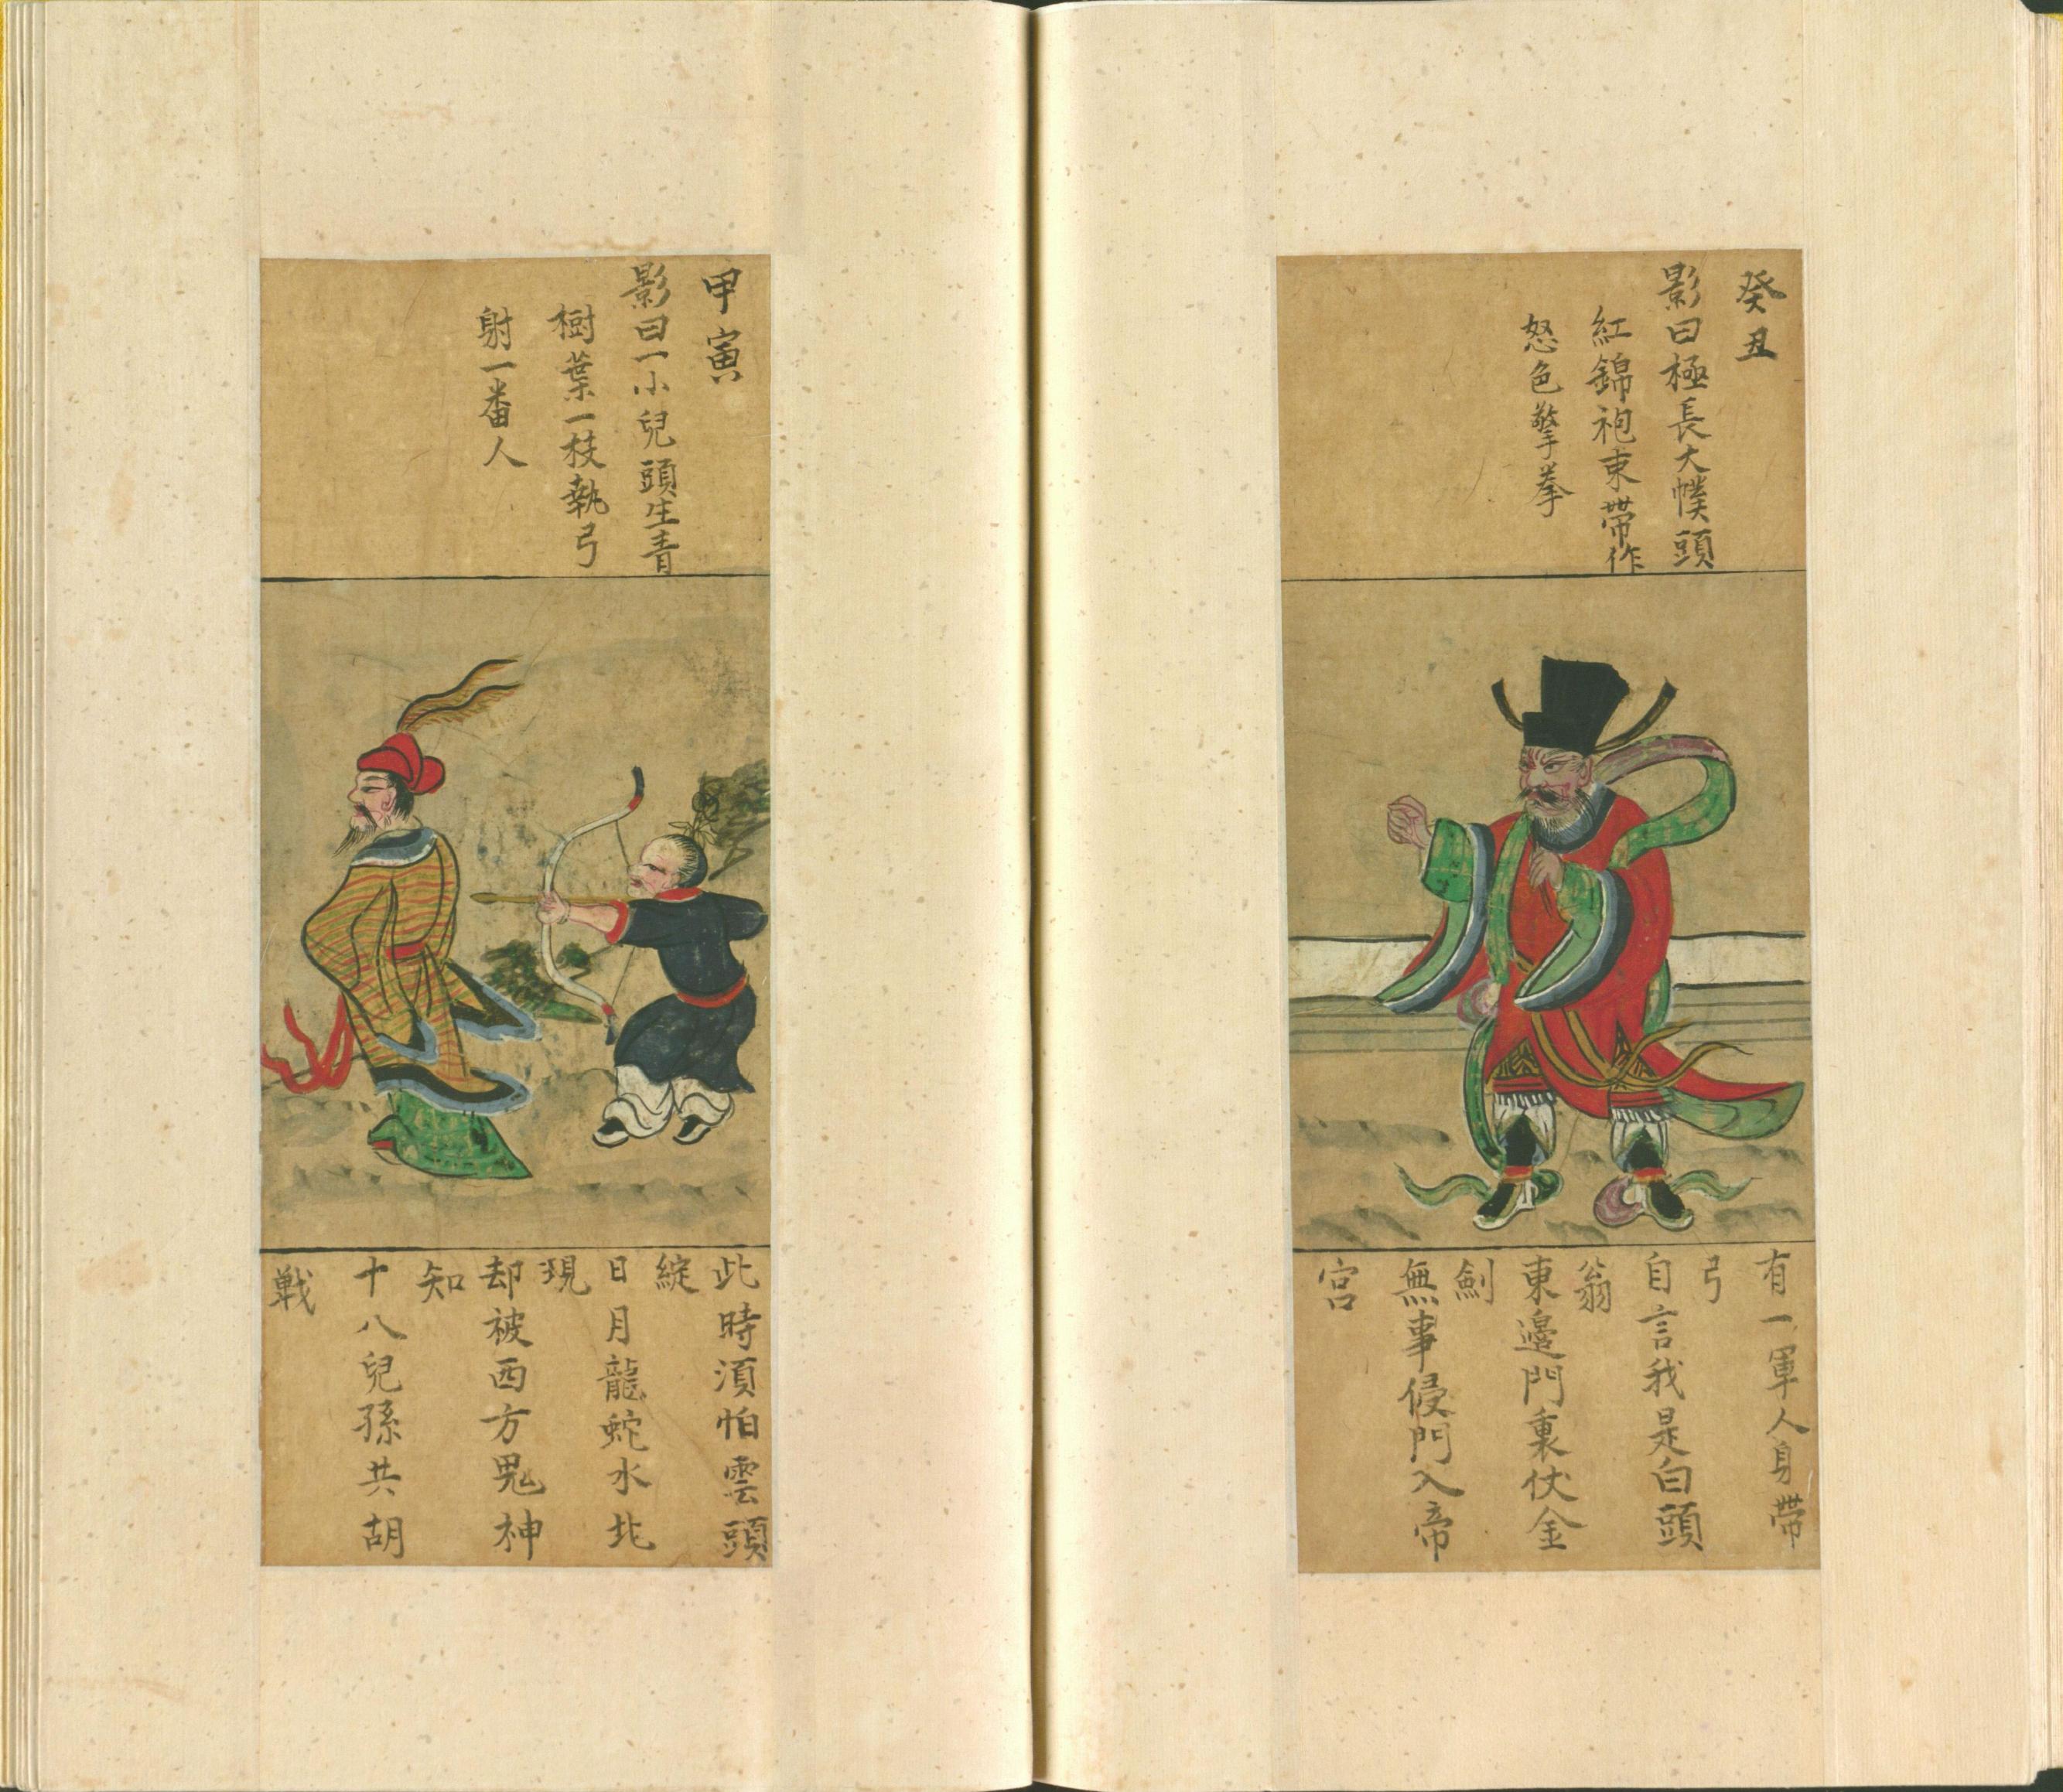 癸丑
影曰極長大幞頭
紅錦袍束帶作
怒色擎拳
有一軍人身帶
弓
自言我是白頭
翁
東邊門裏伏金
劍
無事侵門入帝
宮
甲寅
影曰一小兒頭生青
樹葉一枝執弓
射一番人
此時須怕雲頭
綻
日月龍蛇水北
現
却被西方鬼神
知
十八兒孫共胡
戰